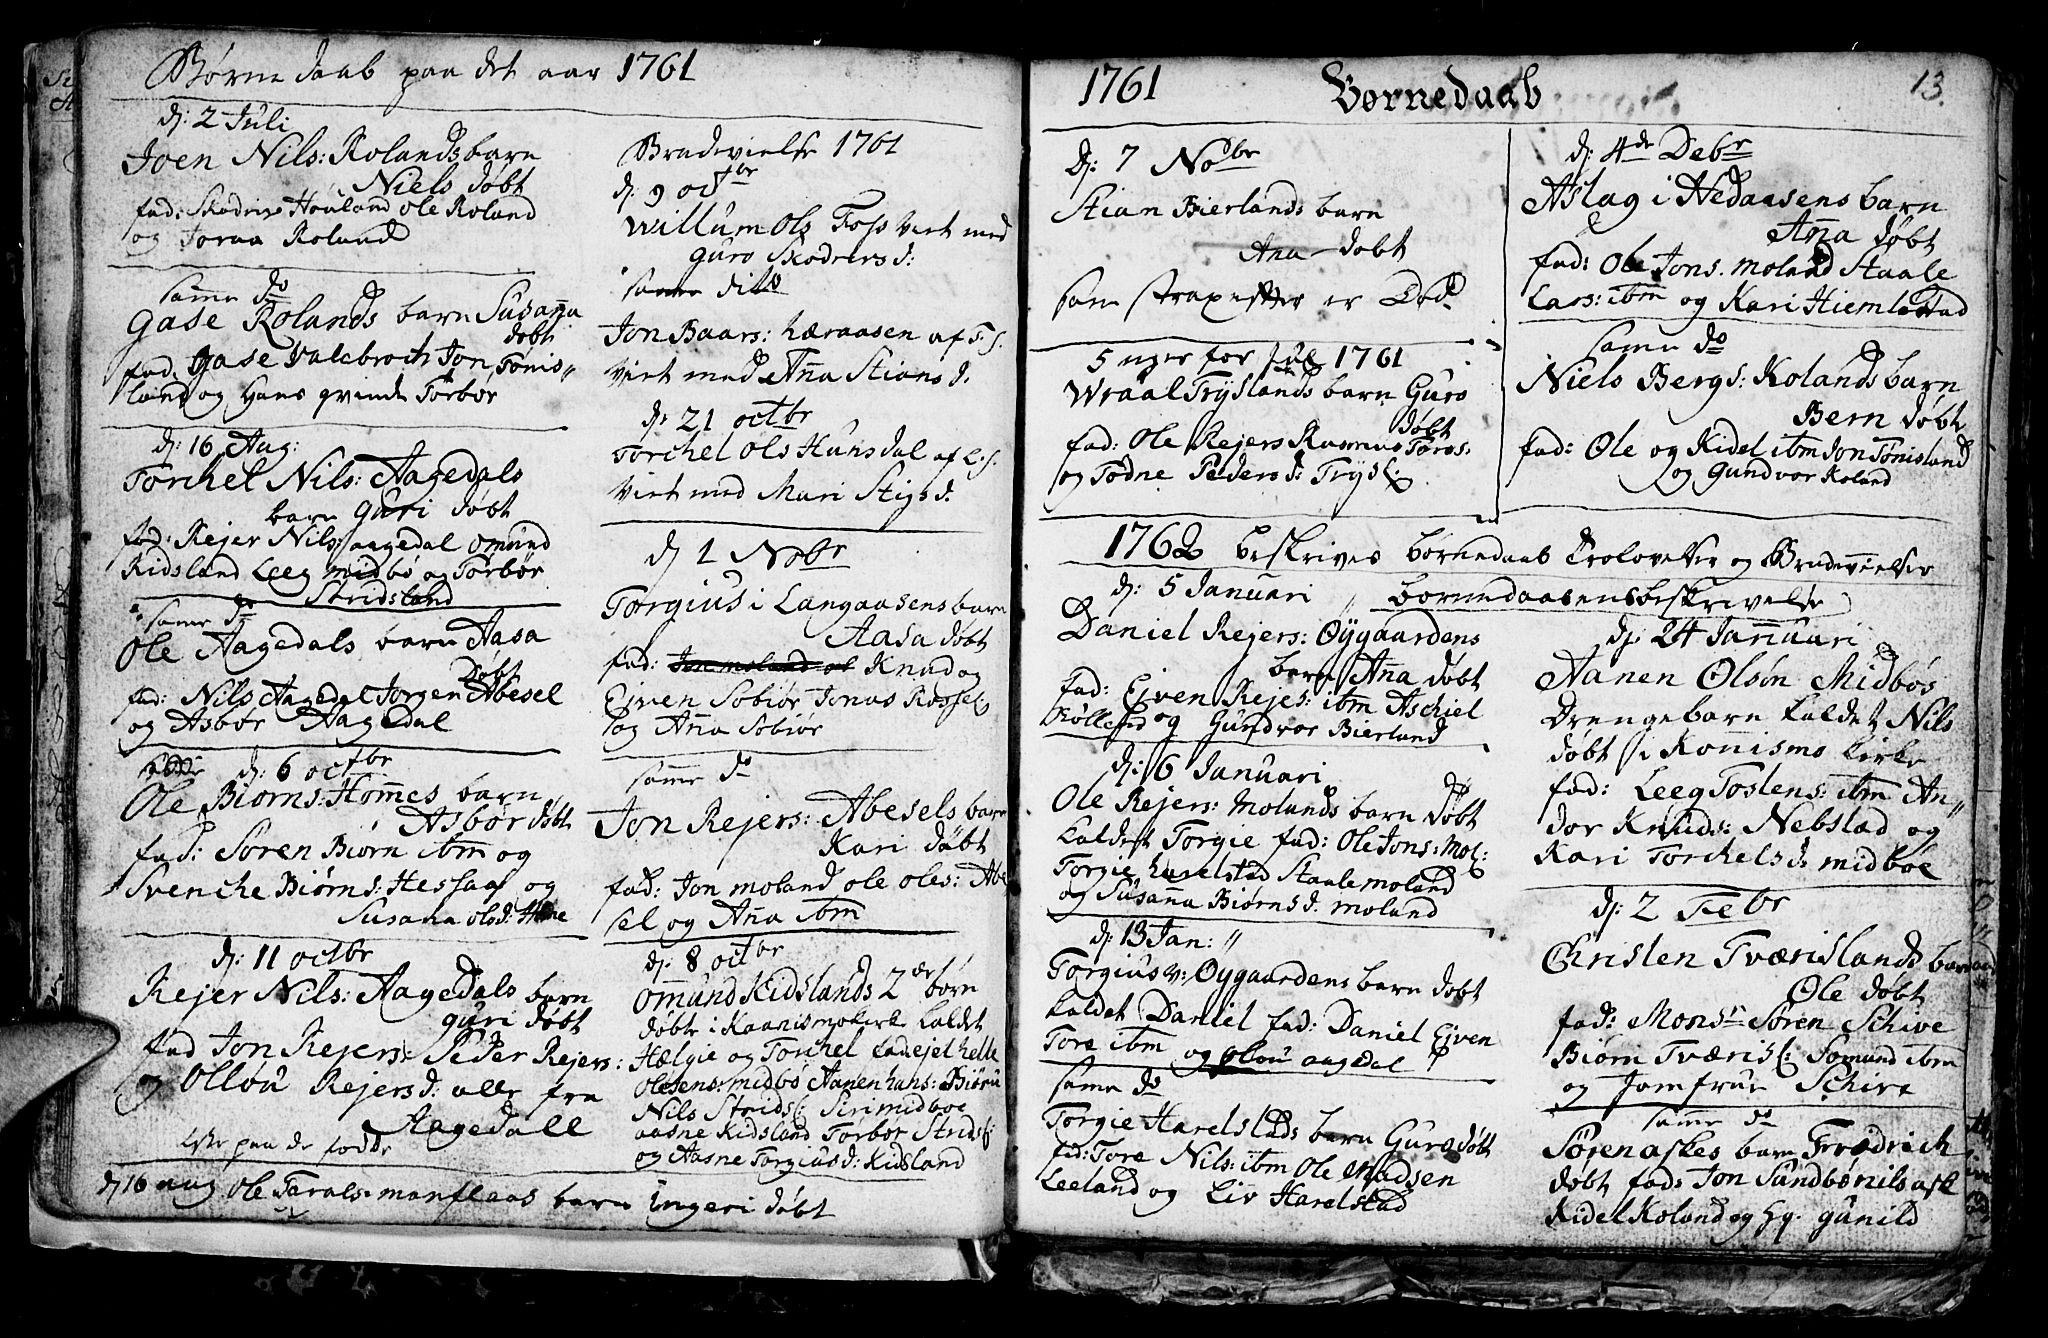 Børne daab paa det aar 1761
dj: 2 Juli
Joen Nils: Rolands barn
Niels døbt
fad: Houland Ole Roland
og Joraa Roland
samme do
Gase Rolands barn Susanna
døbt
fad: Gase Valebroch Jon Tønis„
land og Hans qvinde Torbor
dj: 16 Aug:
Torchel Nils: Aagedals
barn Guri døbt
fad: Rejer Nils: aagedal Omund
Kidsland Leeg midbø og Torbør
Stridsland
samme do
Ole Aagedals barn Aasa
Døbt
fad: Nils Aagedal Jorgen Abesel
og Asbør Aagedal
dj: 6 octbr
Ole Biørns: Hommes barn
Asbør døbt
fad: Søren Biørn ibm og
Svenche Biørns: Hessaa og
Susana olsd: Home
dj: 11 octbr
Rejer Nils: Aagedals barn
guri døbt
fad Jon Rejers: Peder Rejers:
og Ollou Rejers d: alle fra
Aagedall
paa de fødde
dj 16 aug Ole Tarals: manflaas barn Ingeri døbt
Brudevielse 1761
dj 9 octbr
Willum Ols Foss viet med
Guro Skodvers d:
samme dito
Jon Baars: Læraasen af F. S.
viet med Anna Stians d.
dj: 21 octbr
Torchel Ols Hunsdal af L. S.
viet med Mari Stigs d.
dj 1 Nobr
Torgius i Langaasens barn
Aasa døbt
fad: Jon moland Knud og
Ejven Sobiør Jonas Røssel
og Anna Sobiør
samme do
Jon Rejers: Abesels barn
Kari døbt
fad: Jon moland ole oles: Abe
sel og Anna ibm
dj: 8 octbr
Omund Kidslands 2 børn
døbte i Kaanismo kirke kaldet
Hælgie og Torchel fad: ejelhelle
Olesens: midbø Aanen hans: Biøru
Nils Stridsl: Siri midboe
aasne Kidsland Torbør Stridsl
og Aasne Torgius d: Kidsland
1761 Børnedaab 13.
Dj: 7 Nobr
Stian Bierlands barn
Ana døbt
som strax efter er Død
5 uger for Jul 1761
Wraal Tryslands barn Guro
døbt
fad: Ole Rejers Rasmus Tores:
og Todne Peders d: Trysl:
dj: 4de Debr
Aslag i Hedaasens barn
Anna døbt
fad: Ole Jons. moland Staale
Lars: ibm og Kari Hiemlestad
samme do
Niels Bergs: Rolands barn
Bern døbt
fad: Ole og Kidel ibm Jon Tonisland
og Gundvor Roland
1762 beskrives børnedaab Trolovelser og Brudevielser
børnedaabens beskrivelse
dj: 5 Januari
Daniel Rejers: Øÿgaardens
barn Anna døbt
fad: Ejven Rejes: ibm Aschiel
Røllesd og Gundvor Bierland
dj: 6 Januari
Ole Rejers: Molands barn døbt
kaldet Torgie fad: Ole Jons: Mol:
Torgie harelstad Staale moland
og Susanna Biørns d. moland
dj 13 Jan: „
Torgius Øygaardens barn døbt
kaldet Daniel fad: Daniel Ejven
Tore ibm og olou aagdel
samme do
Torgie Harelstads barn Guro døbt
fad: Tore Nils: ibm Ole Madsen
Leeland og Liv Harelstad
dj. 24 Januari
Aanen Olsøn Midbøs
Drengebarn kaldet Nils
døbt i Konnismo kirke
fad: Leeg Tostens: ibm An„
dor Knuds: Nebstad og
Kari Torchels d: midboe
dj: 2 Febr
Christen Tværislands barn
Ole døbt
fad: Monsr Søren Schive
Biørn Tværisl: Somund ibm
og Jomfrue Schive
samme do
Søren askes barn Frødrich
døbt fad: Jon Sundbø nils ask
Kidel Roland og Hq. gunild